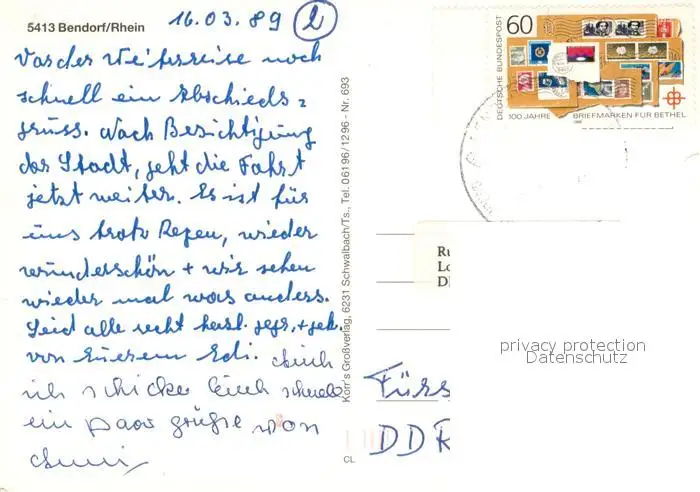 16.03.89 (2)
5413 Bendorf/Rhein
Vor der Weiterreise noch
schnell ein Abschieds=
gruss. Nach Besichtigung
der Stadt, geht die Fahrt
jetzt weiter. Es ist für
uns trotz Regen, wieder
wunderschön + wir sehen
wieder mal was anders.
Seid alle recht herzl. gegr. + gek.
von Eurem Edi. Auch
ich schicke Euch schnell
ein paar grüße von
Korr's Großverlag, 6231 Schwalbach/Ts., Tel. 06196/1296 - Nr. 693
CL
DEUTSCHE BUNDESPOST
60
100 JAHRE BRIEFMARKEN FÜR BETHEL
Ru
Lo
D
privacy protection
Datenschutz
Fürs
DDR